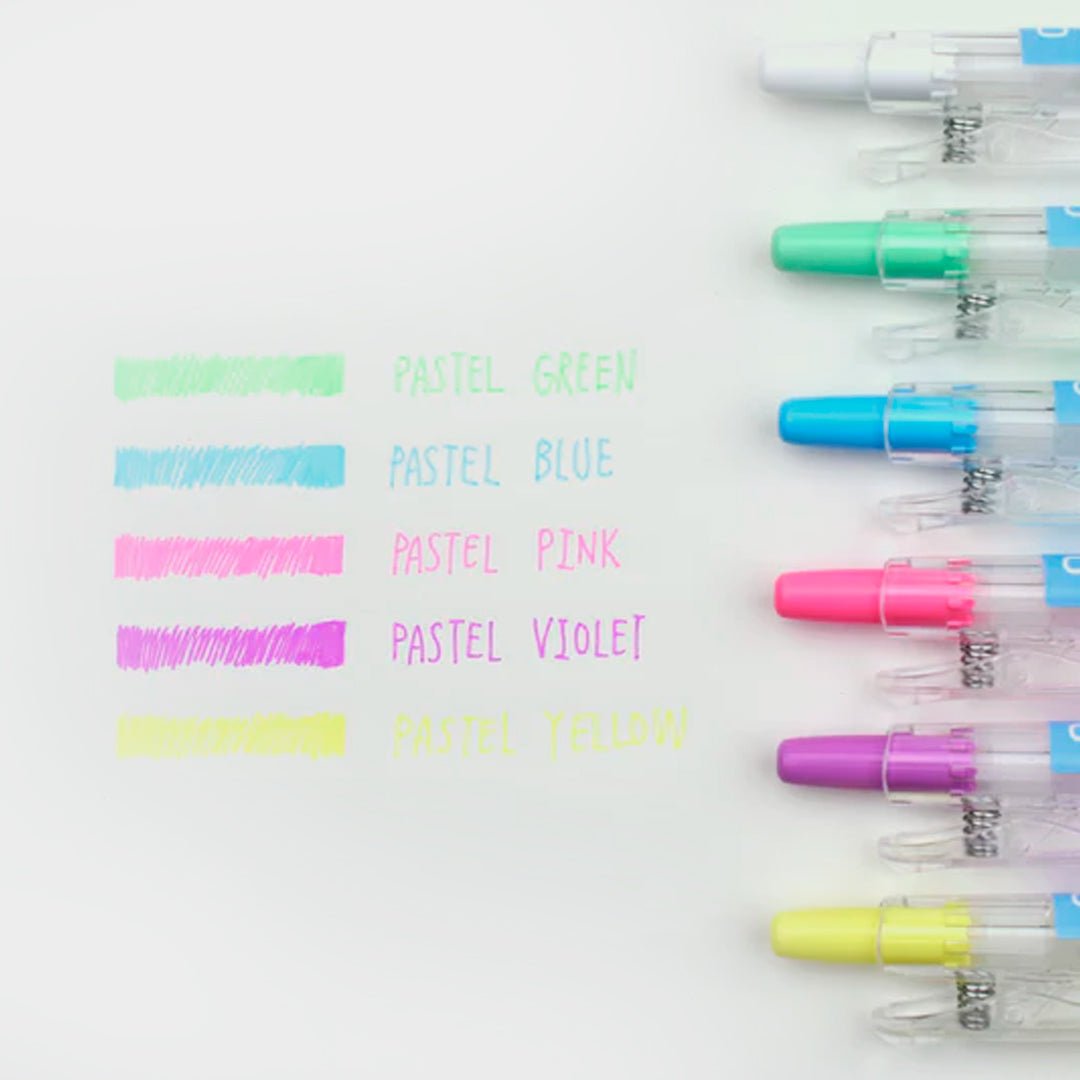 PASTEL GREEN
PASTEL BLUE
PASTEL PINK
PASTEL VIOLET
PASTEL YELLOW